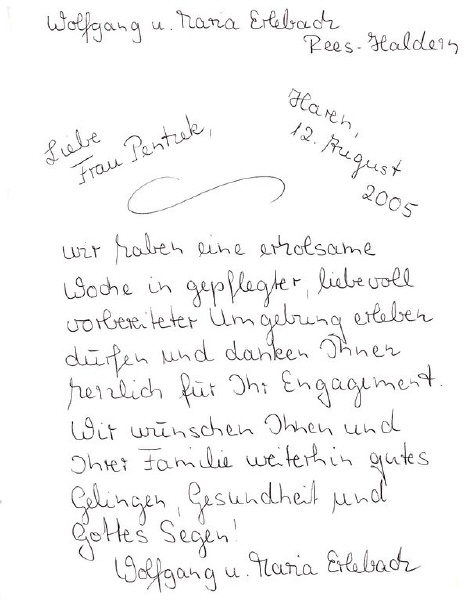 Wolfgang u. Maria Erlebach
Rees-Haldern
Haren,
12. August
2005
Liebe
Frau Pentrek,
wir haben eine erholsame
Woche in gepflegter, liebevoll
vorbereiteter Umgebung erleben
dürfen und danken Ihnen
herzlich für Ihr Engagement.
Wir wünschen Ihnen und
Ihrer Familie weiterhin gutes
Gelingen, Gesundheit und
Gottes Segen!
Wolfgang u. Maria Erlebach